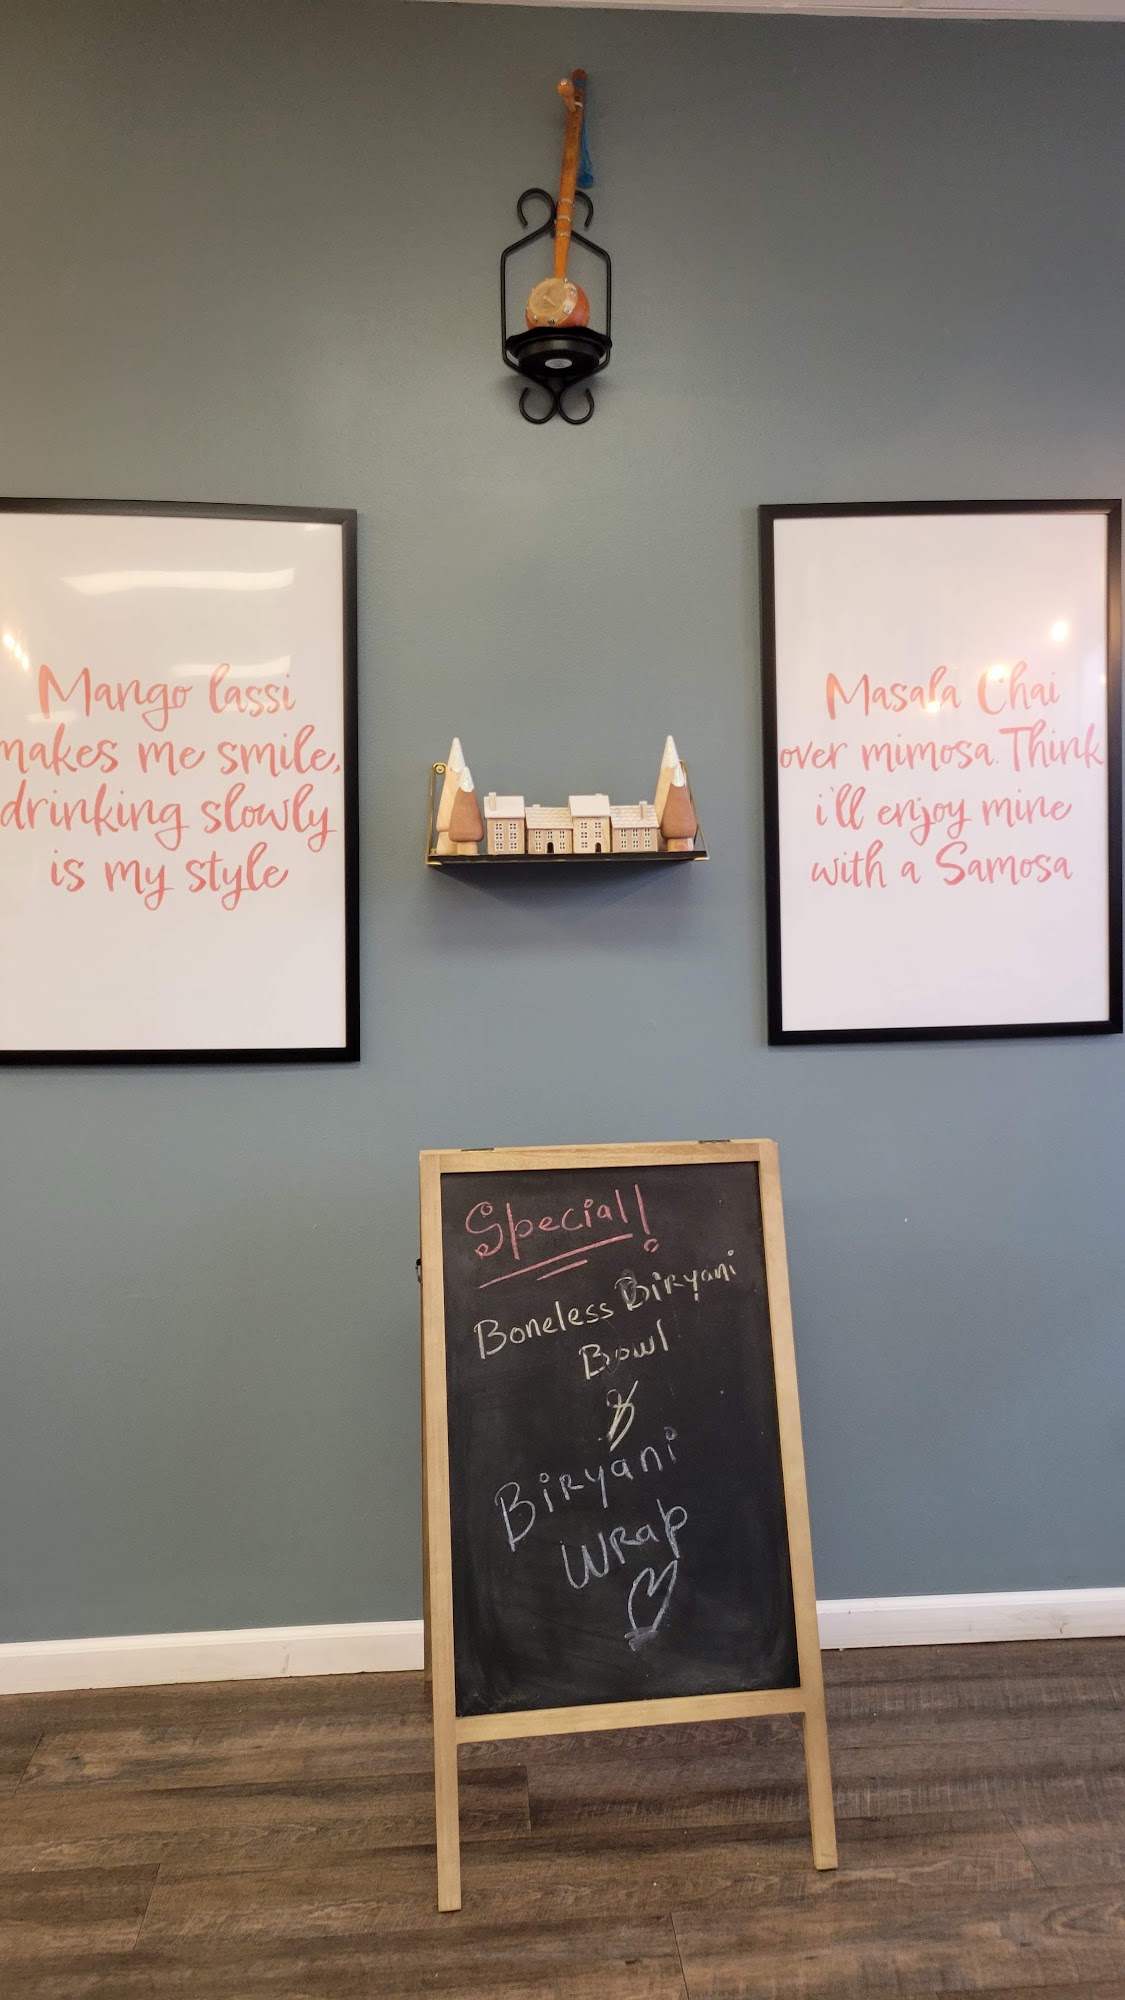 Mango lassi
makes me smile,
drinking slowly
is my style
Masala Chai
over mimosa. Think
i'll enjoy mine
with a Samosa
Special!
Boneless Biryani
Bowl
&
Biryani
Wrap